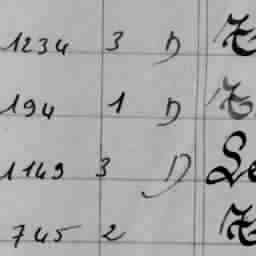 1234 3 D
194 1 D
1149 3 D
745 2